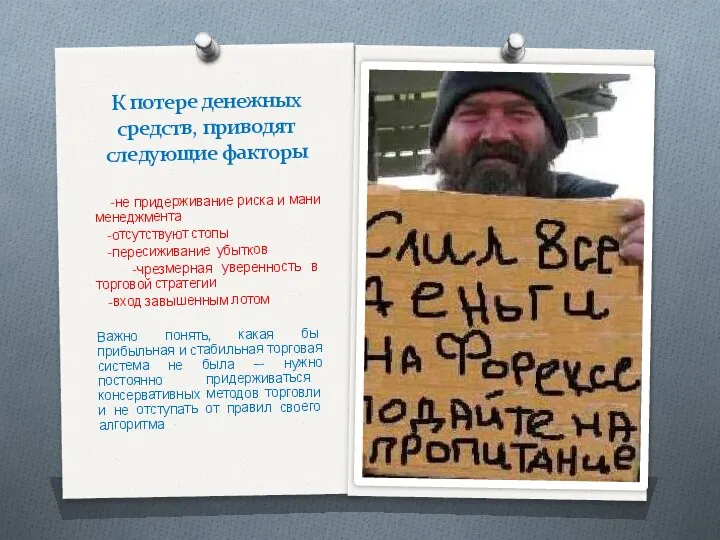 К потере денежных
средств, приводят
следующие факторы
-не придерживание риска и мани
менеджмента
-отсутствуют стопы
-пересиживание убытков
-чрезмерная уверенность в
торговой стратегии
-вход завышенным лотом
Важно понять, какая бы
прибыльная и стабильная торговая
система не была — нужно
постоянно придерживаться
консервативных методов торговли
и не отступать от правил своего
алгоритма
Слил все
деньги
на Форексе
подайте на
пропитание